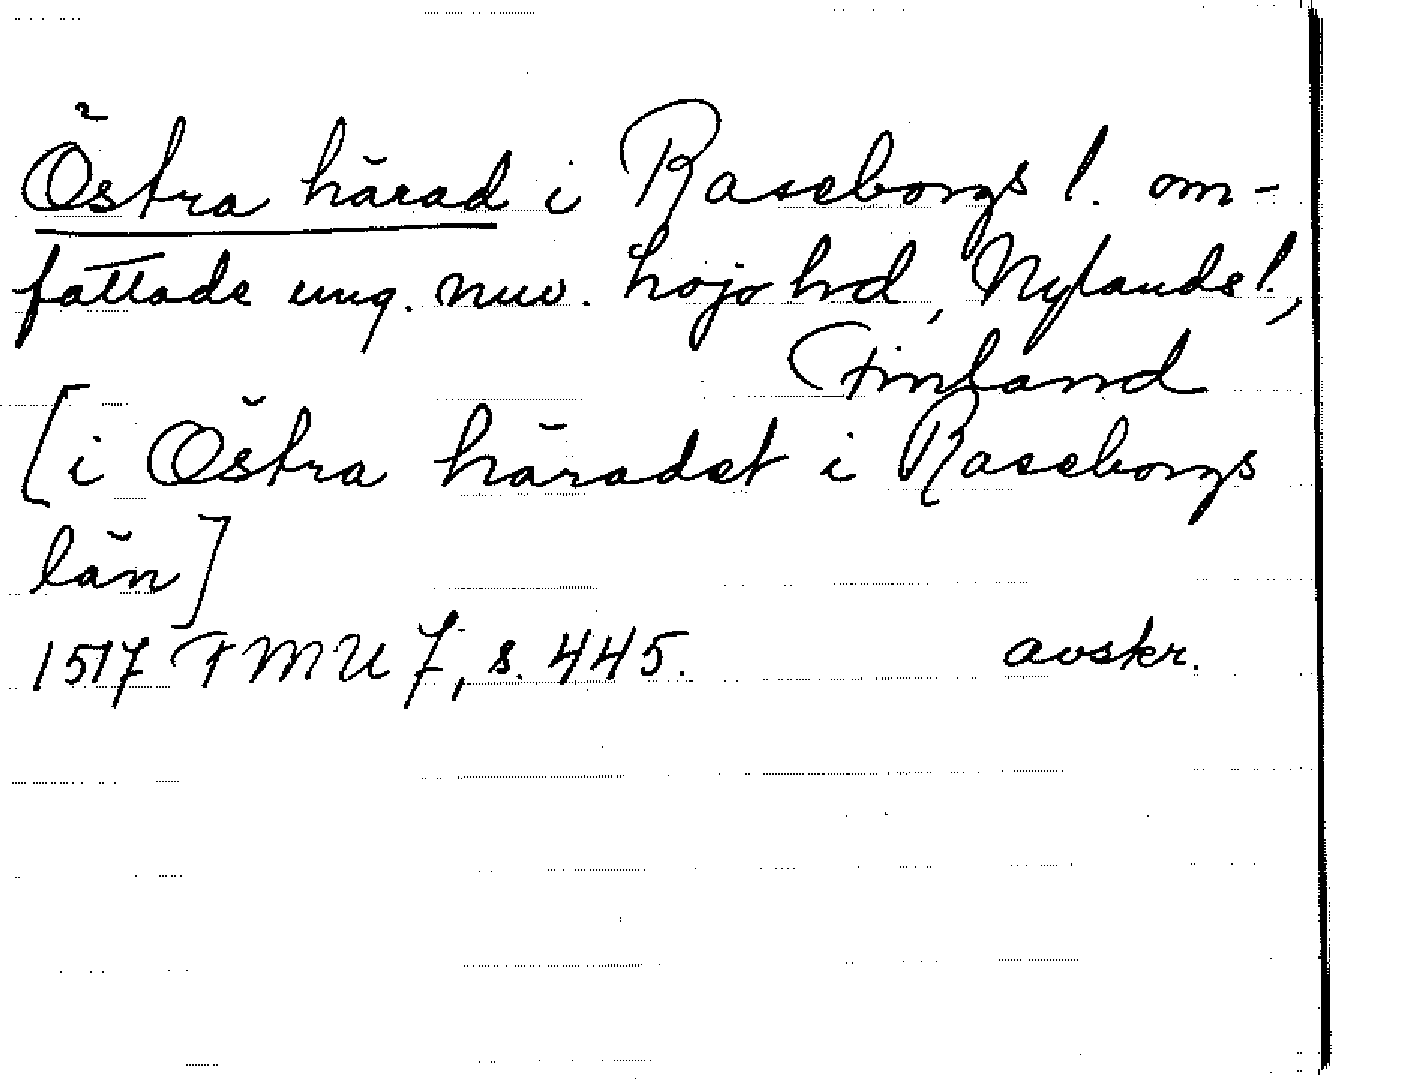 Östra härad i Raseborgs l. om-
fattade ung. nuv. Lojo hrd, Nylands l.,
Finland
[i Östra häradet i Raseborgs
län]
1517 FMU 7, s. 445. avskr.